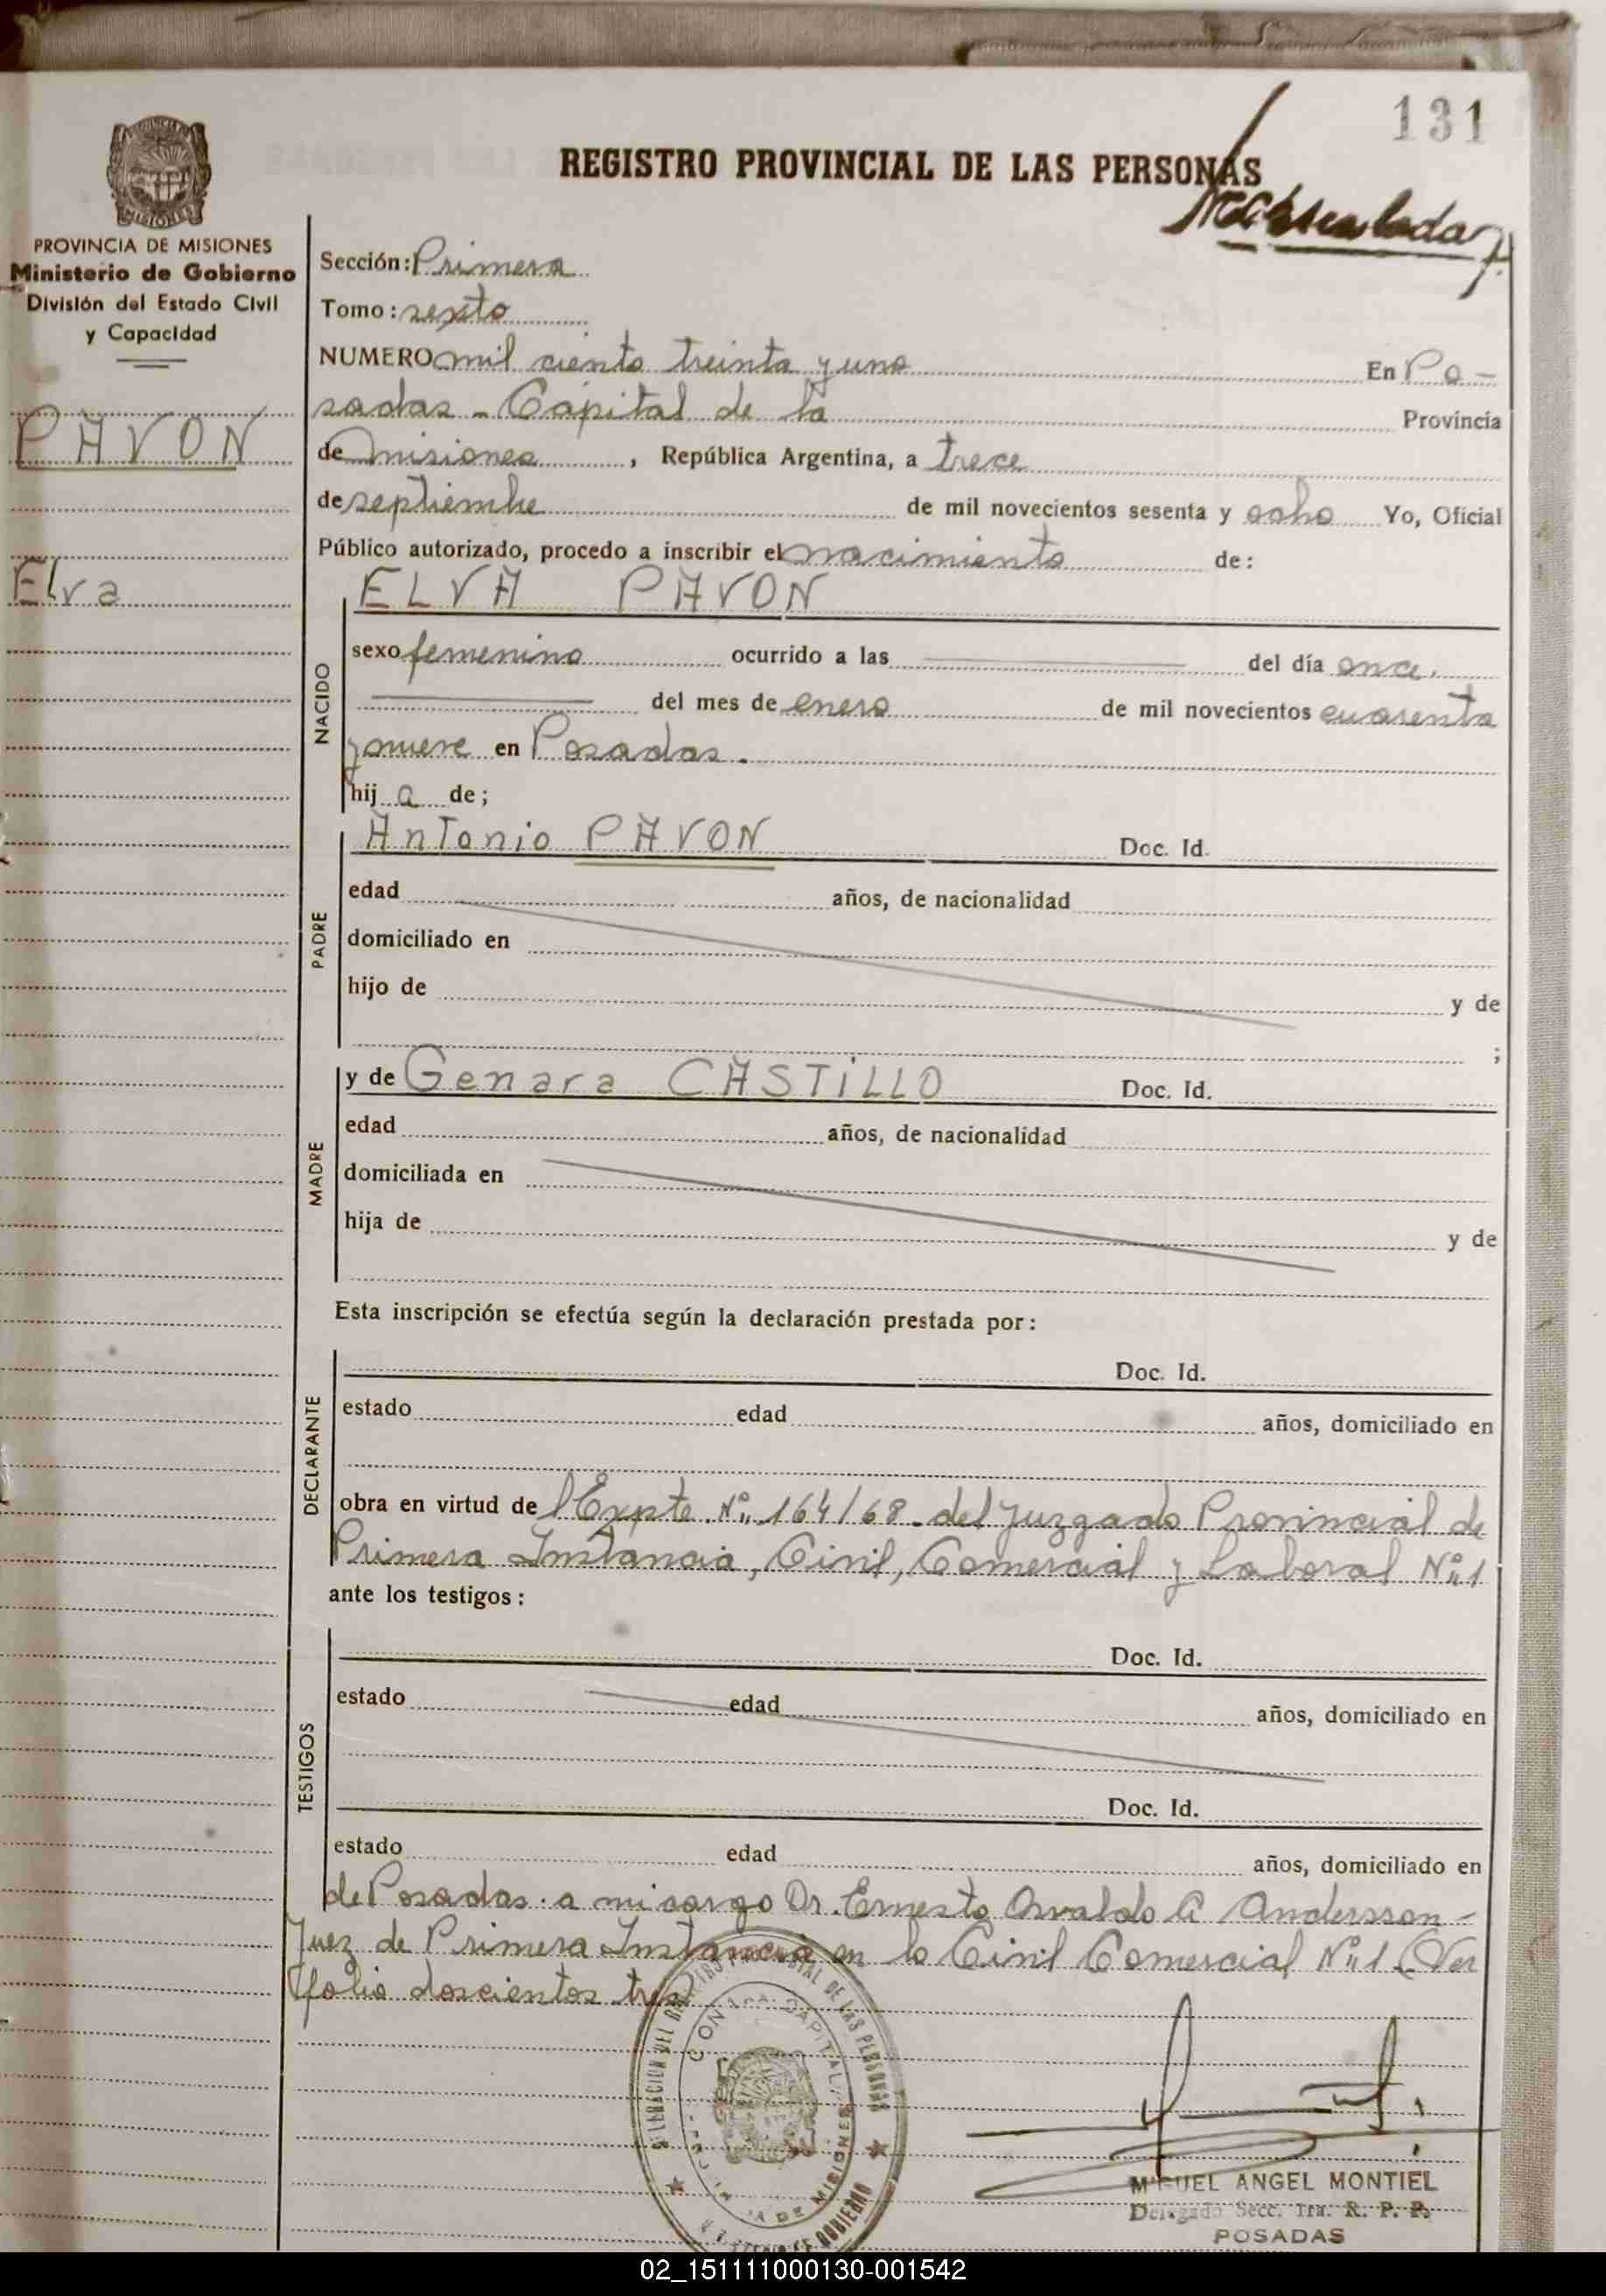 131
REGISTRO PROVINCIAL DE LAS PERSONAS
PROVINCIA DE MISIONES
Ministerio de Gobierno
División del Estado Civil
y Capacidad
PAVON
Elva
Sección: Primera
Tomo: sexto
NUMERO mil ciento treinta y uno En Po-
sadas - Capital de la Provincia
de misiones, República Argentina, a trece
de septiembre de mil novecientos sesenta y ocho Yo, Oficial
Público autorizado, procedo a inscribir el nacimiento de:
ELVA PAVON
NACIDO
sexo femenino ocurrido a las del día once.
del mes de enero de mil novecientos cuarenta
y nueve en Posadas.
hij a de;
Antonio PAVON Doc. Id.
PADRE
edad años, de nacionalidad
domiciliado en
hijo de y de
;
y de Genara CASTiLLO Doc. Id.
MADRE
edad años, de nacionalidad
domiciliada en
hija de y de
Esta inscripción se efectúa según la declaración prestada por:
DECLARANTE
Doc. Id.
estado edad años, domiciliado en
obra en virtud de l Expte. Nº 164/68. del Juzgado Provincial de
Primera Instancia, Civil, Comercial y Laboral Nº 1
ante los testigos:
TESTIGOS
Doc. Id.
estado edad años, domiciliado en
Doc. Id.
estado edad años, domiciliado en
de Posadas. a mi cargo Dr. Ernesto Osvaldo A Andersson-
Juez de Primera Instancia en lo Civil Comercial Nº 1 (Ver
folio doscientos tres
MIGUEL ANGEL MONTIEL
Delegado Secc. 1ra. R. P. P.
POSADAS
02_151111000130-001542